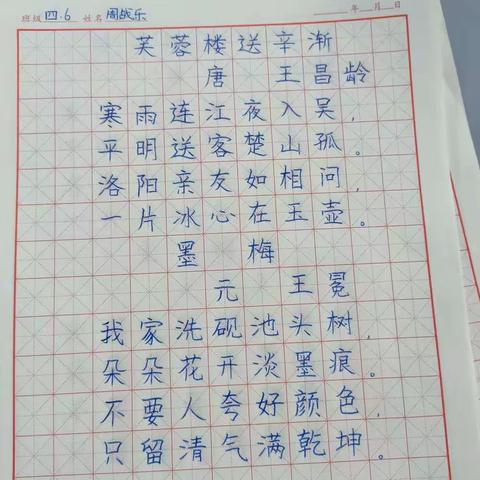 班级 四.6 姓名 周战乐 年 月 日
芙蓉楼送辛渐
唐 王昌龄
寒雨连江夜入吴，
平明送客楚山孤。
洛阳亲友如相问，
一片冰心在玉壶。
墨 梅
元 王冕
我家洗砚池头树，
朵朵花开淡墨痕。
不要人夸好颜色，
只留清气满乾坤。